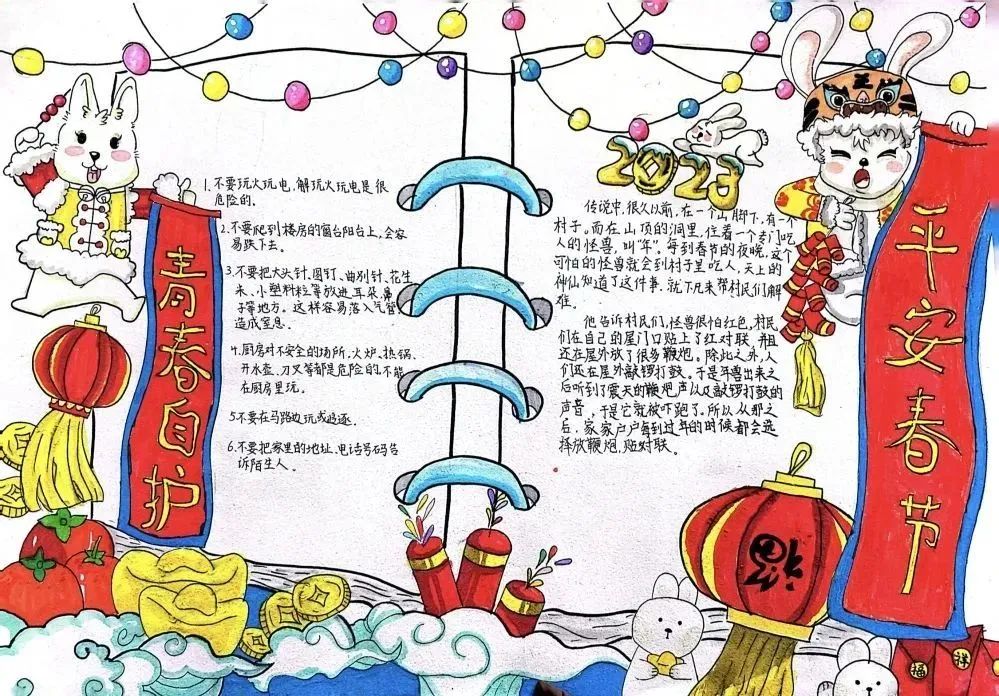 青春自护
1.不要玩火玩电,解玩火玩电是很
危险的.
2.不要爬到楼房的窗台阳台上,会容
易跌下去.
3.不要把大头针、图钉、曲别针、花生
米、小塑料粒等放进耳朵、鼻
子等地方。这样容易落入气管
造成窒息.
4.厨房对不安全的场所,火炉、热锅、
开水壶、刀叉等都是危险的,不能
在厨房里玩.
5.不要在马路边玩或追逐.
6.不要把家里的地址、电话号码告
诉陌生人.
2023
传说中,很久以前,在一个山脚下,有一个
村子。而在山顶的洞里,住着一个专门吃
人的怪兽,叫“年”,每到春节的夜晚,这个
可怕的怪兽就会到村子里吃人,天上的
神仙知道了这件事,就下凡来帮村民们解
难.
他告诉村民们,怪兽很怕红色,村民
们在自己的屋门口贴上了红对联,并且
还在屋外放了很多鞭炮。除此之外,人
们还在屋外敲锣打鼓。于是年兽出来之
后听到了震天的鞭炮声以及敲锣打鼓的
声音,于是它就被吓跑了.所以从那之
后,家家户户每到过年的时候都会选
择放鞭炮,贴对联.
平安春节
福
福
祥